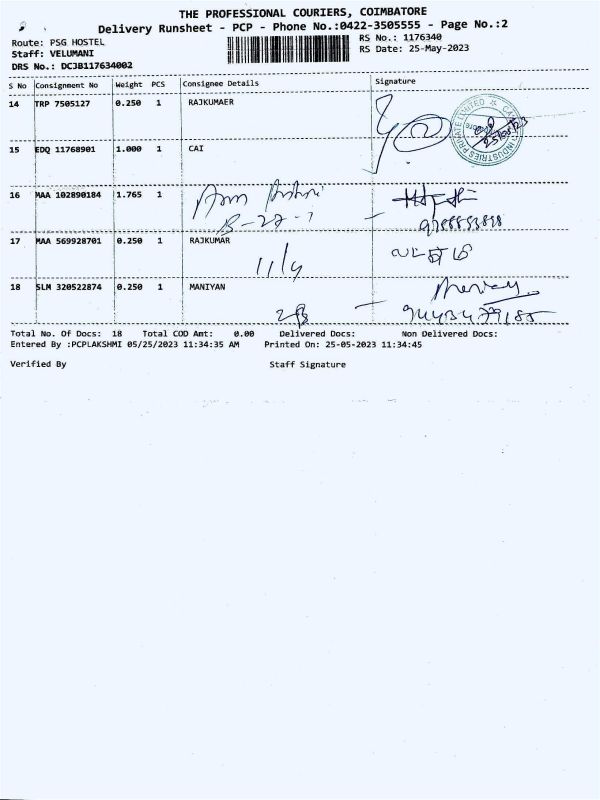 THE PROFESSIONAL COURIERS, COIMBATORE
Delivery Runsheet - PCP - Phone No.:0422-3505555 - Page No.:2
Route: PSG HOSTEL RS No.: 1176340
Staff: VELUMANI RS Date: 25-May-2023
DRS No.: DCJB117634002
S No Consignment No Weight PCS Consignee Details Signature
14 TRP 7505127 0.250 1 RAJKUMAER
15 EDQ 11768901 1.000 1 CAI
16 MAA 102890184 1.765 1
B-27-1
17 MAA 569928701 0.250 1 RAJKUMAR
11/4
18 SLM 320522874 0.250 1 MANIYAN
Total No. Of Docs: 18 Total COD Amt: 0.00 Delivered Docs: Non Delivered Docs:
Entered By :PCPLAKSHMI 05/25/2023 11:34:35 AM Printed On: 25-05-2023 11:34:45
Verified By Staff Signature